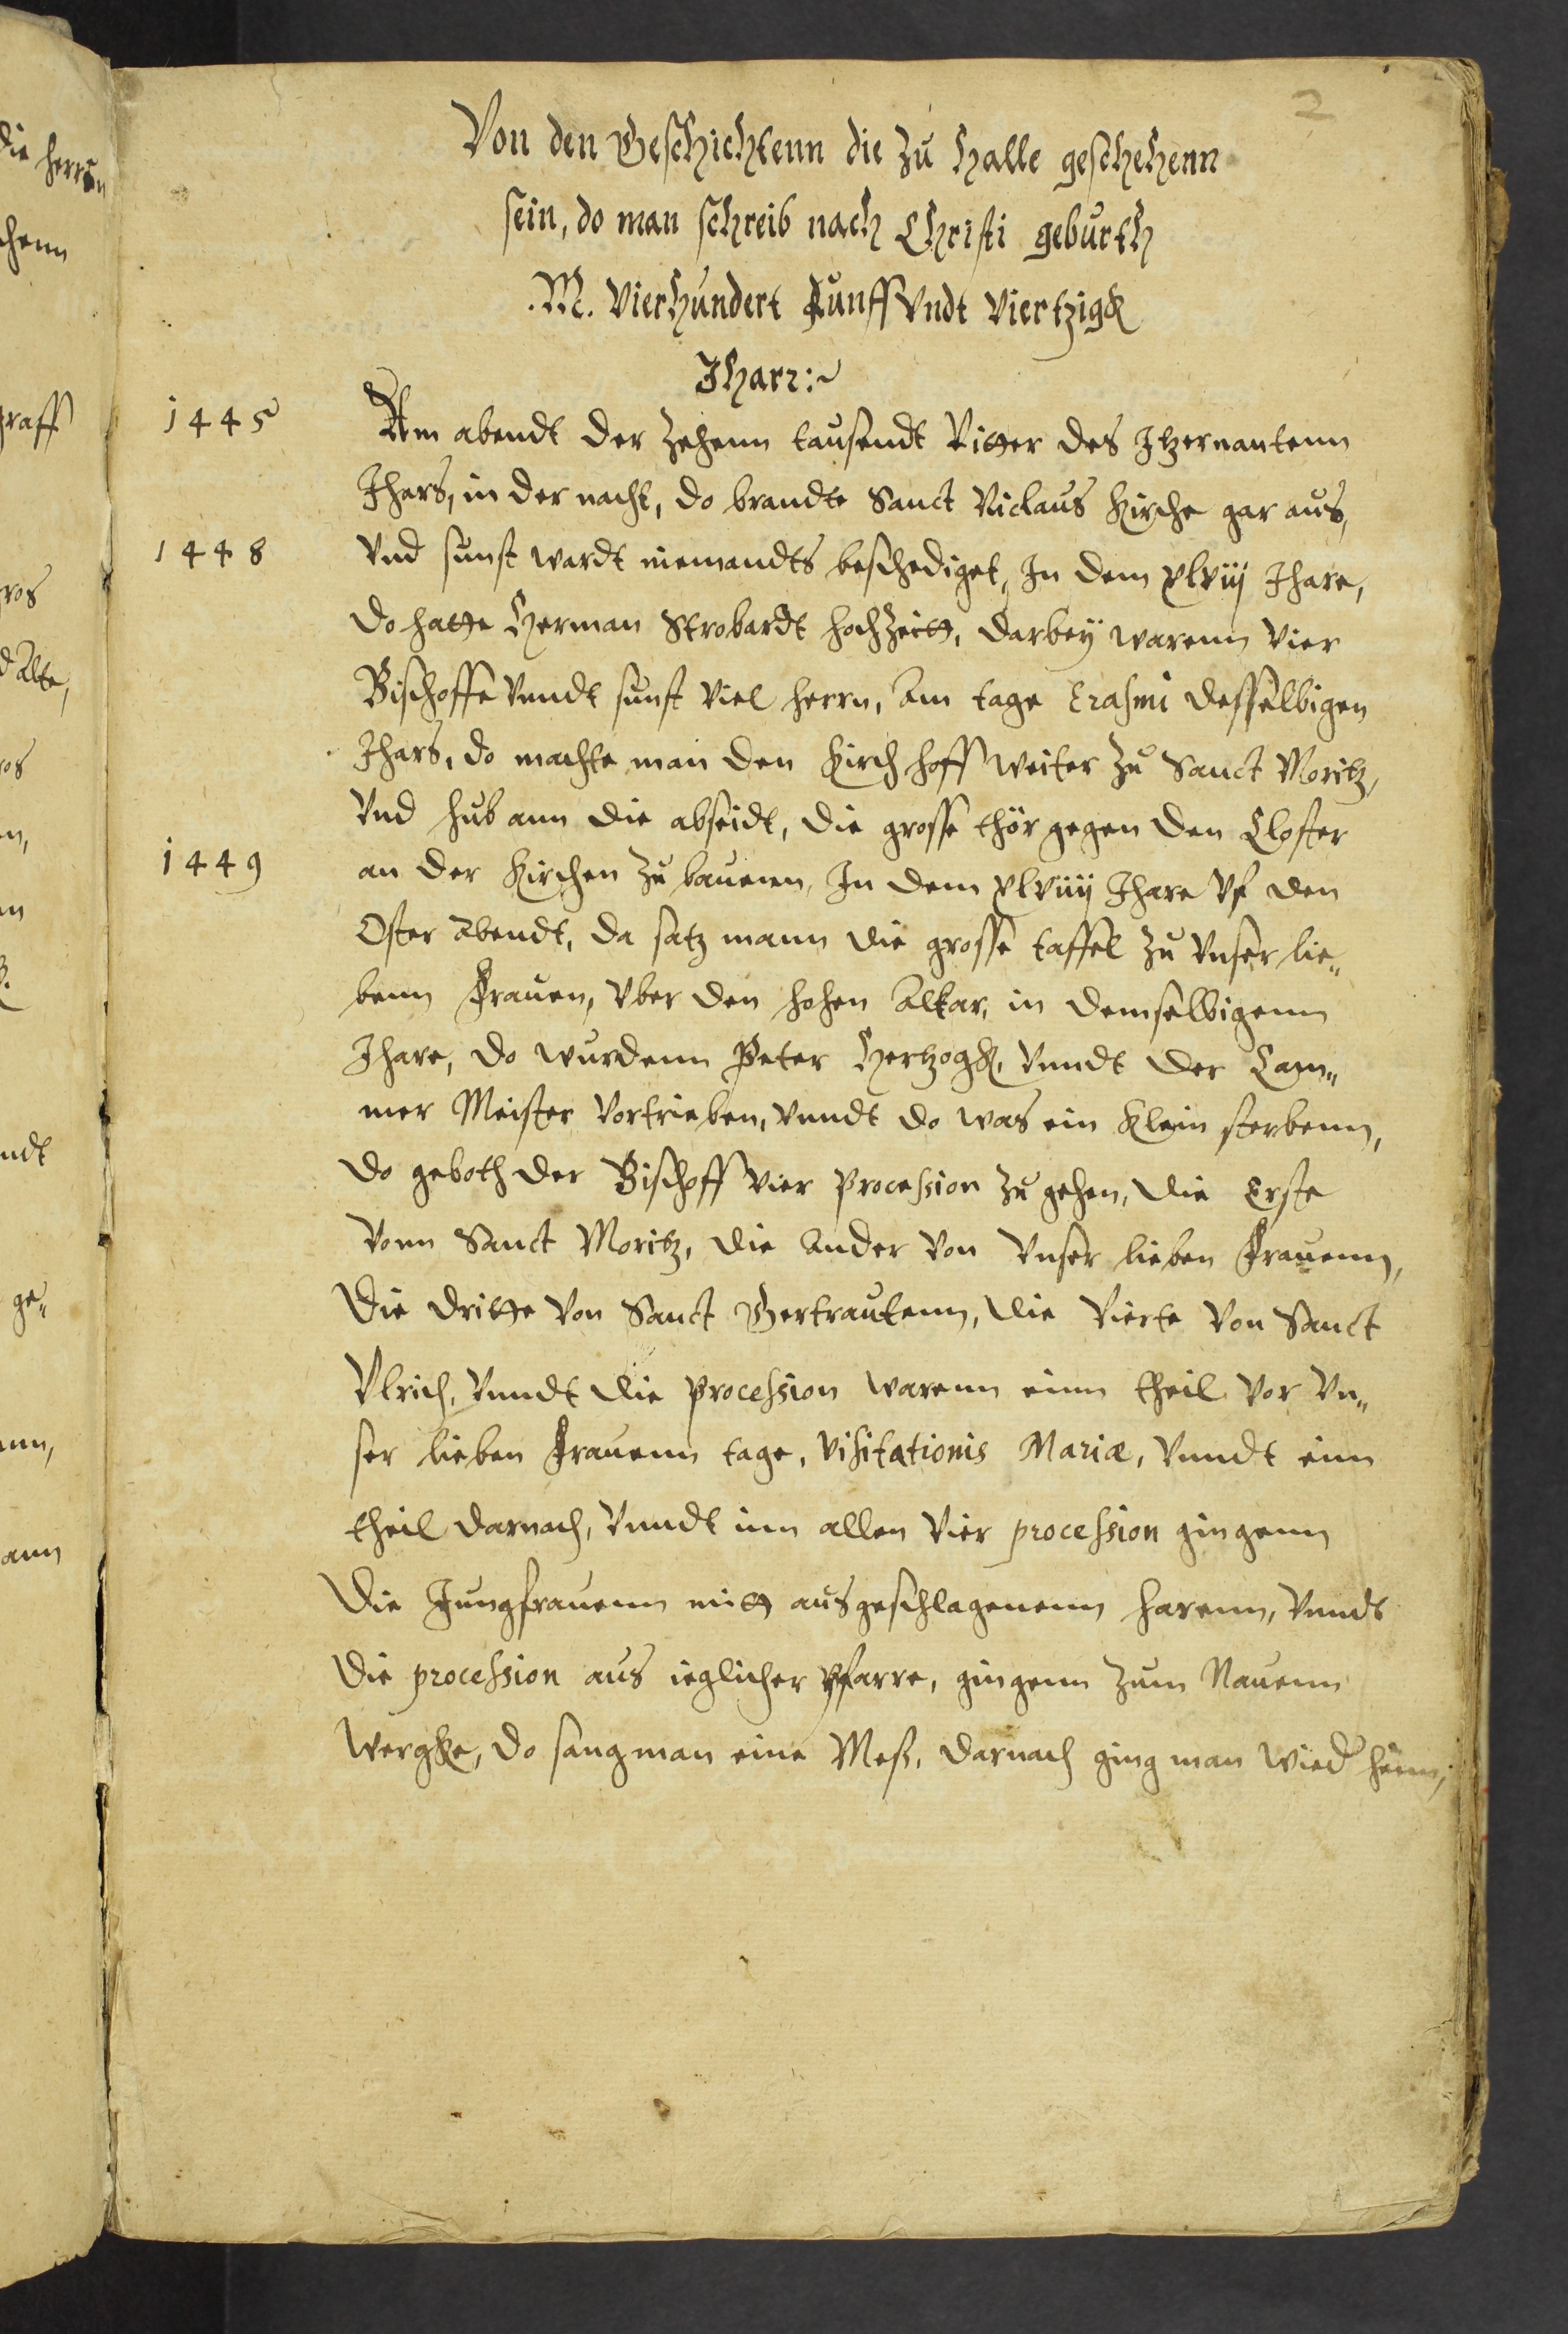 2
Von den Geschichtenn die zu Halle geschehenn
sein, do man schreib nach Christi geburth
.M. Vierhundert Funff Vndt Viertzigk
Jharr:~
1445 Am abendt der zehenn tausendt Ritter des Itzernantenn
Jhars, in der nacht, do brandte Sanct Niclaus Kirche gar aus,
1448 Vnd sunst wardt niemandts beschediget, In dem xlviij Jhare,
do hatte Herman Strobardt hochzeitt, darbeÿ warenn Vier
Bischoffe Vnndt sunst Viel herrn, Am tage Erasmi desselbigen
Jhars, do machte man den Kirchhoff weiter zu Sanct Moritz,
Vnd hub ann die abseidt, die grosse thör gegen den Closter
1449 an der Kirchen zu bauenn, In dem xlviiij Jhare Vf den
Oster Abendt, da satz mann die grosse taffel zu Vnser lie„
benn Frauen, Vber den hohen Altar, in demselbigenn
Jhare, do wurdenn Peter Hertzogk, Vnndt der Cam„
mer Meister Vortrieben, Vnndt do was ein Klein sterbenn,
do geboth der Bischoff Vier Procession zu gehen, die Erste
Vonn Sanct Moritz, die Ander Von Vnser lieben Frauenn,
die dritte Von Sanct Gertrautenn, die Vierte Von Sanct
Vlrich, Vnndt die Procession warenn einn theil Vor Vn„
ser lieben Frauenn tage, Visitationis Mariæ, Vnndt einn
theil darnach, Vnndt inn allen Vier procession gingenn
die Jungfrauenn mitt ausgeschlagenenn harenn, Vnndt
die procession aus ieglicher Pfarre, gingenn zum Nauenn
Wergke, do sang man eine Meß, darnach ging man wied heim,